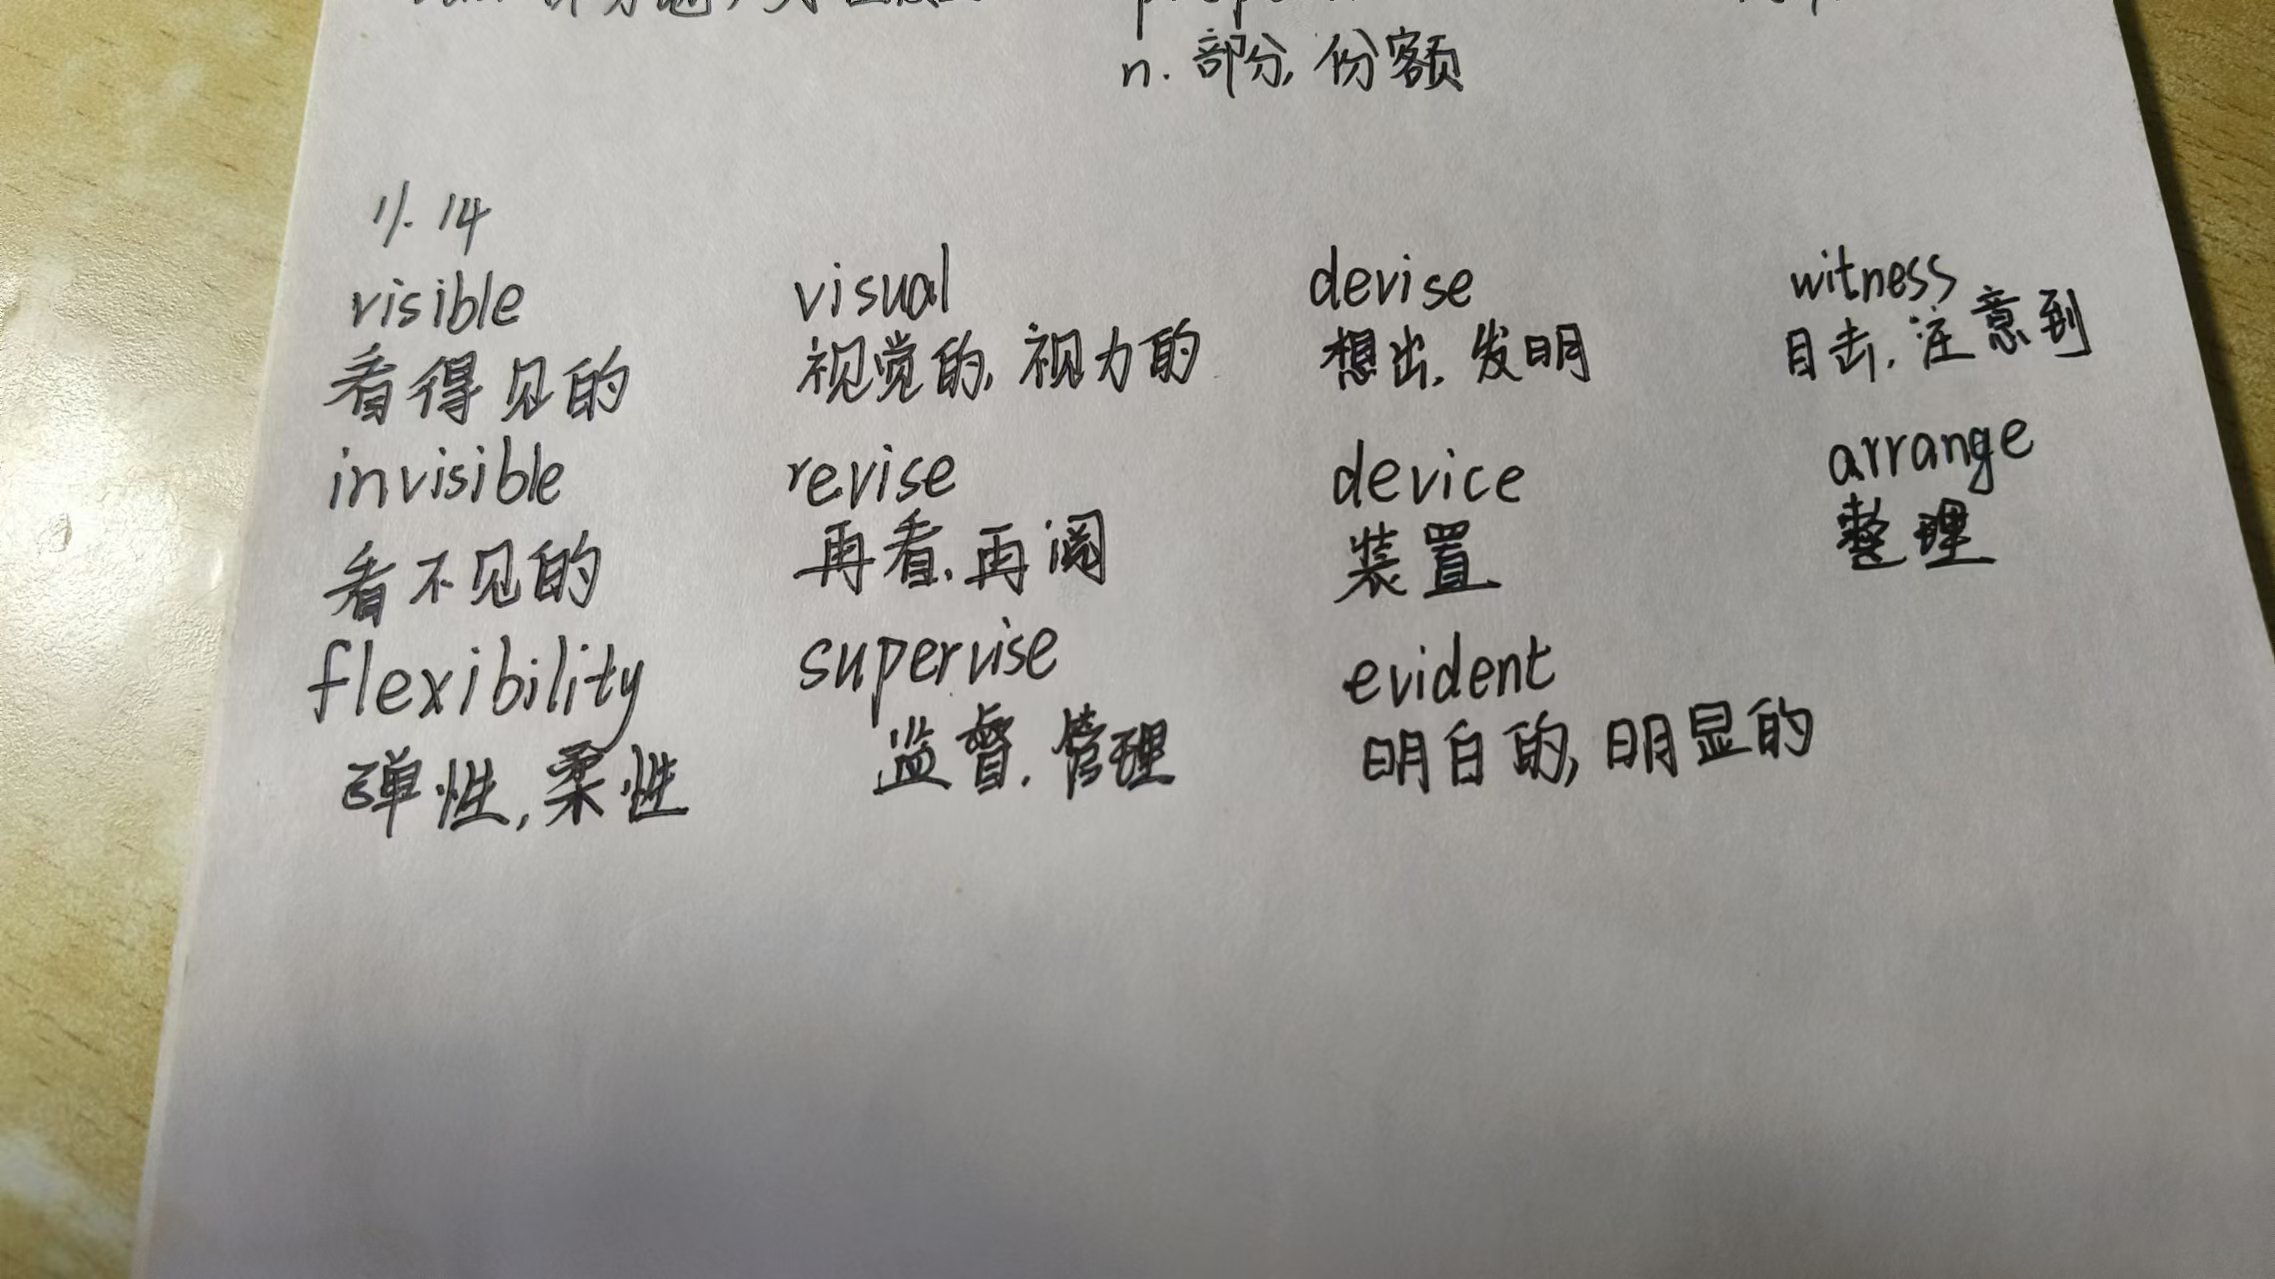 n. 部分, 份额
11. 14
visible visual devise witness
看得见的 视觉的, 视力的 想出, 发明 目击, 注意到
invisible revise device arrange
看不见的 再看, 再阅 装置 整理
flexibility supervise evident
弹性, 柔性 监督, 管理 明白的, 明显的